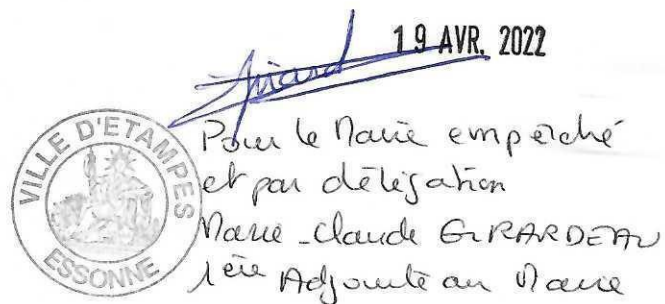 19 AVR. 2022
VILLE D'ETAMPES
ESSONNE
Pour le Maire empêché
et par délégation
Marie-Claude GIRARDEAU
1ère Adjointe au Maire